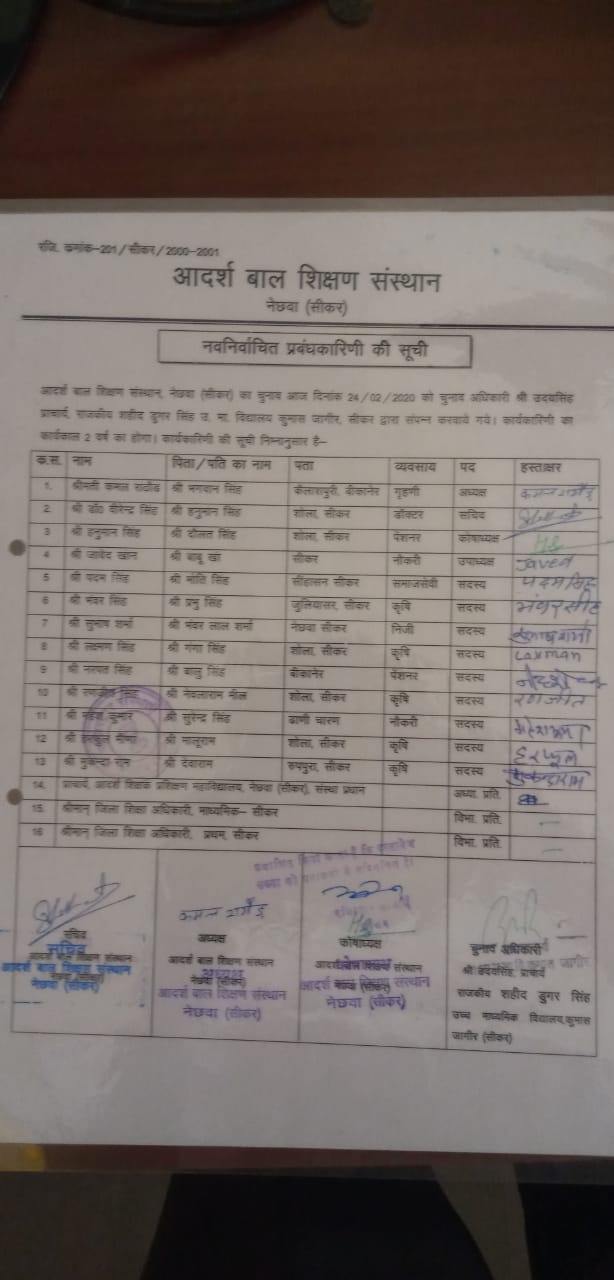 रजि. कमांक-201/सीकर/2000-2001
आदर्श बाल शिक्षण संस्थान
नेछवा (सीकर)
नवनिर्वाचित प्रबंधकारिणी की सूची
आदर्श बाल शिक्षण संस्थान, नेछवा (सीकर) का चुनाव आज दिनांक 24/02/2020 को चुनाव अधिकारी श्री उदयसिंह
प्राचार्य, राजकीय शहीद डुगर सिंह उ. मा. विद्यालय कुमास जागीर, सीकर द्वारा संपन्न करवाये गये। कार्यकारिणी का
कार्यकाल 2 वर्ष का होगा। कार्यकारिणी की सूची निम्नानुसार है–
क.स. नाम पिता/पति का नाम पता व्यवसाय पद हस्ताक्षर
1. श्रीमती कमल राठौड श्री भगवान सिंह बीकानेर गृहणी अध्यक्ष
2. श्री डॉ० वीरेन्द्र सिंह श्री हनुमान सिंह शोला, सीकर डॉक्टर सचिव
3 श्री हनुमान सिंह श्री दौलत सिंह शोला, सीकर पेंशनर कोषाध्यक्ष
4 श्री जावेद खान श्री बाबू खा सीकर नौकरी उपाध्यक्ष Javed
5 श्री पदम सिंह श्री मोति सिंह सीहासन सीकर समाजसेवी सदस्य पदमसिंह
6 श्री भंवर सिंह श्री प्रभु सिंह जुलियासर, सीकर कृषि सदस्य भंवरसिंह
7 श्री सुभाष शर्मा श्री भंवर लाल शर्मा नेछवा सीकर निजी सदस्य
8 श्री लक्ष्मण सिंह श्री गंगा सिंह शोला, सीकर कृषि सदस्य Laxman
9 श्री नरपत सिंह श्री बालु सिंह बीकानेर पेंशनर सदस्य
10 श्री रणजीत सिंह श्री नेवलाराम मील शोला, सीकर कृषि सदस्य रणजीत
11 श्री कुमार श्री सुरेन्द्र सिंह ढाणी चारण नौकरी सदस्य
12 श्री हरफुल मीमा श्री मालूराम शोला, सीकर कृषि सदस्य हरफूल
13 श्री मुकन्दा राम श्री देवाराम रुपपुरा, सीकर कृषि सदस्य मुकन्दाराम
14. प्राचार्य, आदर्श शिक्षक प्रशिक्षण महाविद्यालय, नेछवा (सीकर), संस्था प्रधान अध्या. प्रति.
15. श्रीमान् जिला शिक्षा अधिकारी, माध्यमिक– सीकर विभा. प्रति. –
16 श्रीमान् जिला शिक्षा अधिकारी, प्रथम, सीकर विभा. प्रति. –
सचिव
आदर्श बाल शिक्षण संस्थान
नेछवा (सीकर)
सचिव
आदर्श बाल शिक्षण संस्थान
नेछवा (सीकर)
अध्यक्ष
आदर्श बाल शिक्षण संस्थान
नेछवा (सीकर)
अध्यक्ष
आदर्श बाल शिक्षण संस्थान
नेछवा (सीकर)
कोषाध्यक्ष
आदर्श बाल शिक्षण संस्थान
नेछवा (सीकर)
नेछवा (सीकर)
चुनाव अधिकारी
श्री उदयसिंह, प्राचार्य
राजकीय शहीद डुगर सिंह
उच्च माध्यमिक विद्यालय,कुमास
जागीर (सीकर)